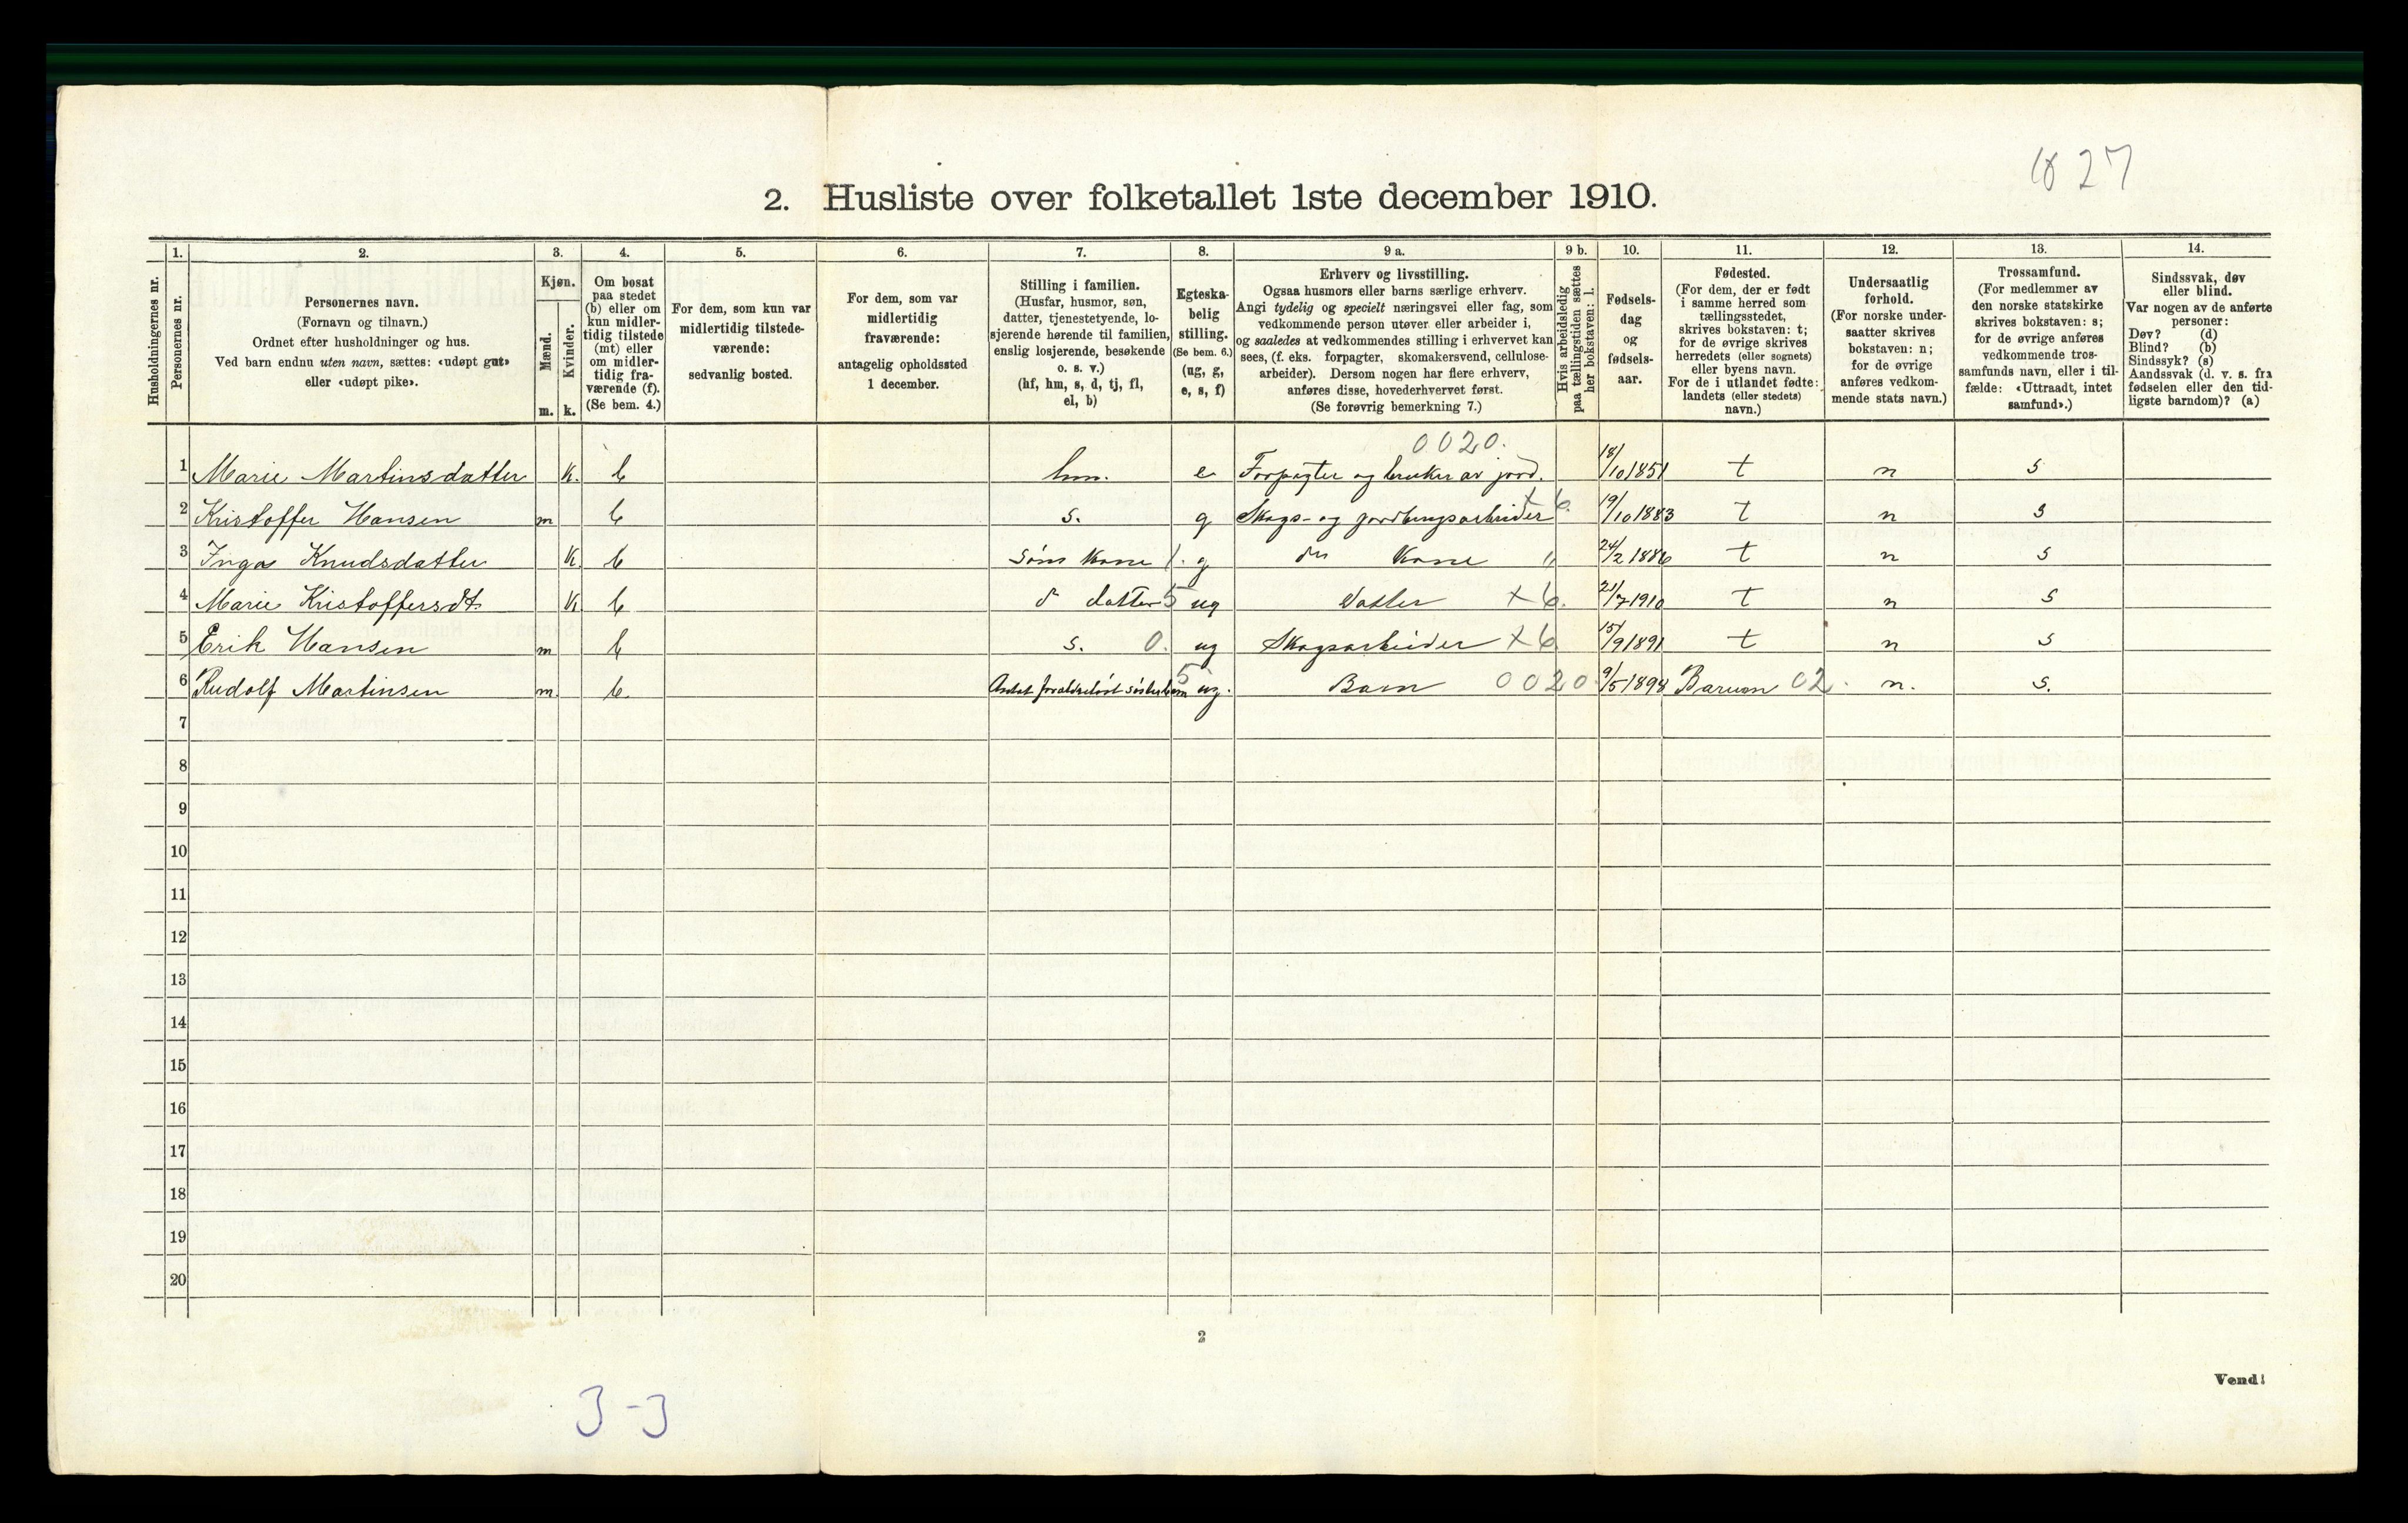 27
2. Husliste over folketallet 1ste december 1910.
1. 2. 3. 4. 5. 6. 7. 8. 9 a. 9 b. 10. 11. 12. 13. 14.
Husholdningernes nr.
Personernes nr.
Personernes navn.
(Fornavn og tilnavn.)
Ordnet efter husholdninger og hus.
Ved barn endnu uten navn, sættes: «udøpt gut»
eller «udøpt pike».
Kjøn.
Mænd.
Kvinder.
m. k.
Om bosat
paa stedet
(b) eller om
kun midler-
tidig tilstede
(mt) eller
om midler-
tidig fra-
værende (f).
(Se bem. 4.)
For dem, som kun var
midlertidig tilstede-
værende:
sedvanlig bosted.
For dem, som var
midlertidig
fraværende:
antagelig opholdssted
1 december.
Stilling i familien.
(Husfar, husmor, søn,
datter, tjenestetyende, lo-
sjerende hørende til familien,
enslig losjerende, besøkende
o. s. v.)
(hf, hm, s, d, tj, fl,
el, b)
Egteska-
belig
stilling.
(Se bem. 6.)
(ug, g,
e, s, f)
Erhverv og livsstilling.
Ogsaa husmors eller barns særlige erhverv.
Angi tydelig og specielt næringsvei eller fag, som
vedkommende person utøver eller arbeider i,
og saaledes at vedkommendes stilling i erhvervet kan
sees, (f. eks. forpagter, skomakersvend, cellulose-
arbeider). Dersom nogen har flere erhverv,
anføres disse, hovederhvervet først.
(Se forøvrig bemerkning 7.)
Hvis arbeidsledig
paa tællingstiden sættes
her bokstaven: l.
Fødsels-
dag
og
fødsels-
aar.
Fødested.
(For dem, der er født
i samme herred som
tællingsstedet,
skrives bokstaven: t;
for de øvrige skrives
herredets (eller sognets)
eller byens navn.
For de i utlandet fødte:
landets (eller stedets)
navn.)
Undersaatlig
forhold.
(For norske under-
saatter skrives
bokstaven: n;
for de øvrige
anføres vedkom-
mende stats navn.)
Trossamfund.
(For medlemmer av
den norske statskirke
skrives bokstaven: s;
for de øvrige anføres
vedkommende tros-
samfunds navn, eller i til-
fælde: «Uttraadt, intet
samfund».)
Sindssvak, døv
eller blind.
Var nogen av de anførte
personer:
Døv? (d)
Blind? (b)
Sindssyk? (s)
Aandssvak (d. v. s. fra
fødselen eller den tid-
ligste barndom)? (a)
0020.
1 Marie Martinsdatter k. b hm. e Forpagter og bruker av jord. 18/10 1851 t n s
2 Kristoffer Hansen m b s. g Skogs- og gaardbrugsarbeider x 6. 19/10 1883 t n s
3 Inga Knudsdatter k. b Søns Kone 1. g ds Kone " 24/2 1886 t n s
4 Marie Kristoffersdt. k b d datter 5 ug datter x 6. 21/7 1910 t n s
5 Erik Hansen m b s. 0. ug Skogsarbeider x 6 15/9 1891 t n s
6 Rudolf Martinsen m. b. forældreløst søsterbarn 5 ug. Barn 0020. 9/5 1898 Barum 02. n. s.
7
8
9
10
11
12
13
14
15
16
17
18
19
20
2
Vend!
3-3